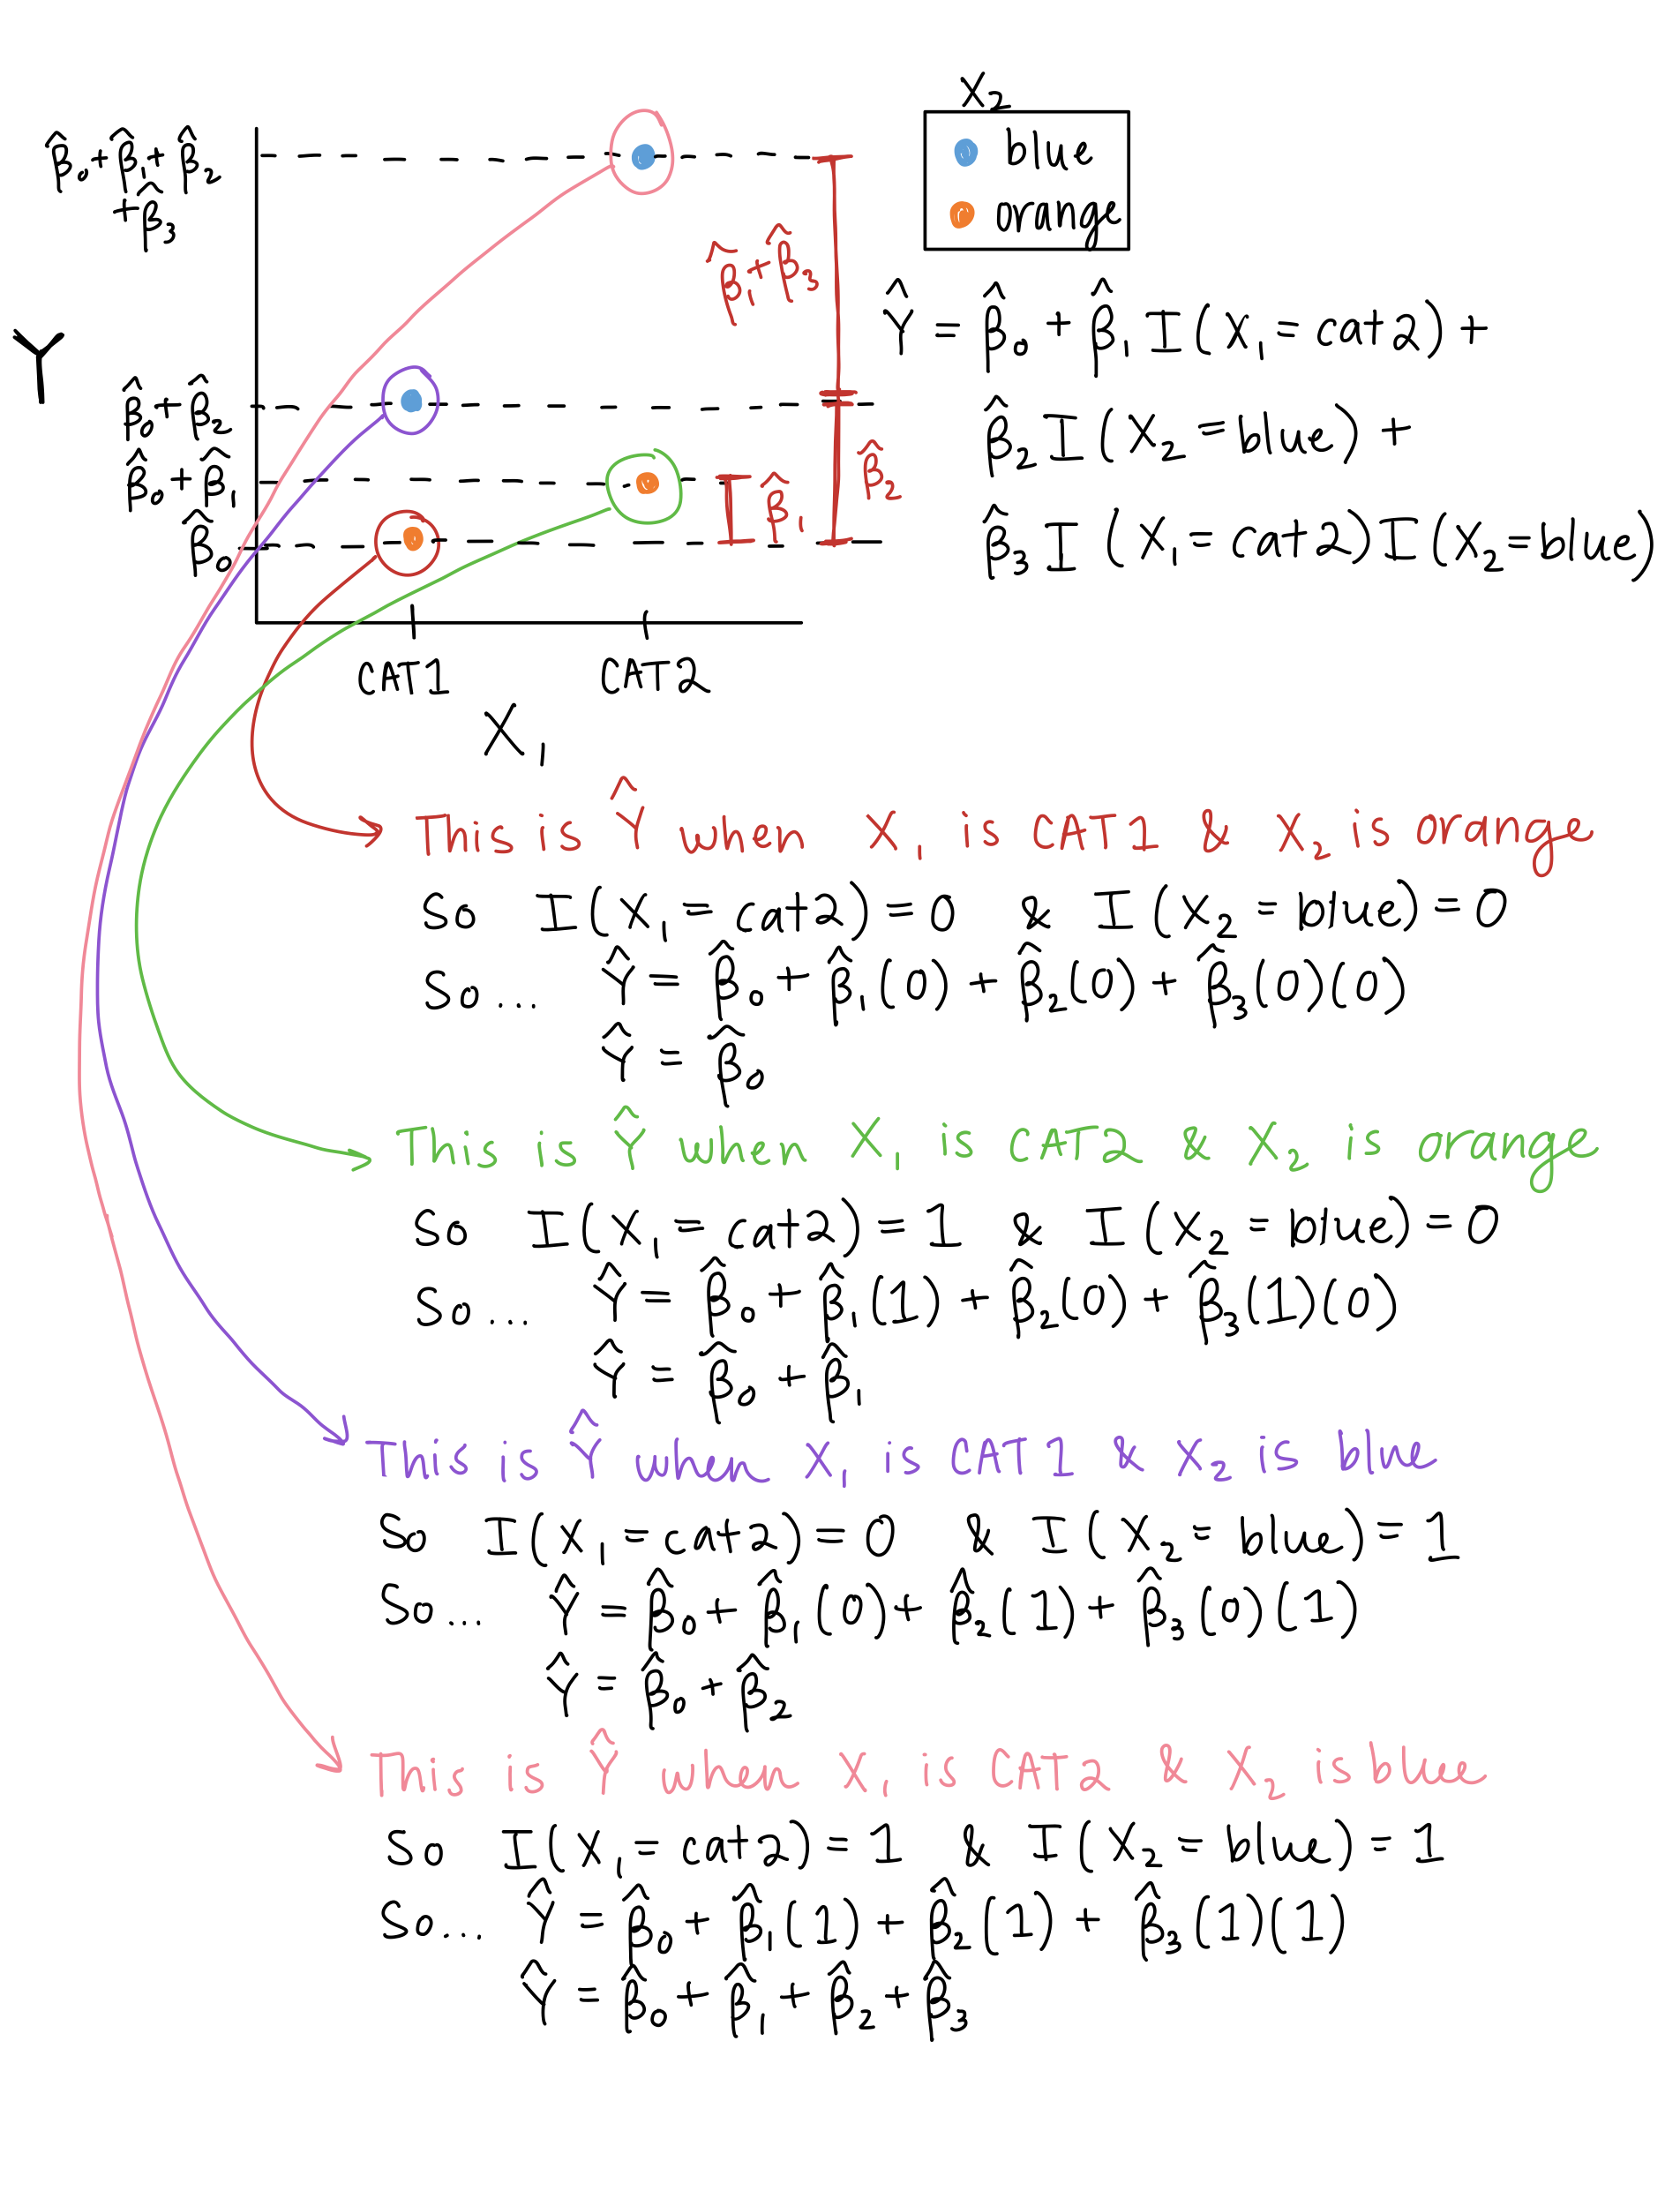 X₂
blue
orange
β̂₀+β̂₁+β̂₂
+β̂₃
β̂₁+β̂₃
Ŷ = β̂₀ + β̂₁ I(X₁ = cat2) +
β̂₂ I(X₂ = blue) +
β̂₃ I (X₁ = cat2) I(X₂ = blue)
Y
β̂₀+β̂₂
β̂₀+β̂₁
β̂₀
β̂₁
β̂₂
CAT1
CAT2
X₁
This is Ŷ when X₁ is CAT1 & X₂ is orange
So I(X₁ = cat2) = 0 & I(X₂ = blue) = 0
So... Ŷ = β̂₀ + β̂₁(0) + β̂₂(0) + β̂₃(0)(0)
Ŷ = β̂₀
This is Ŷ when X₁ is CAT2 & X₂ is orange
So I(X₁ = cat2) = 1 & I(X₂ = blue) = 0
So... Ŷ = β̂₀ + β̂₁(1) + β̂₂(0) + β̂₃(1)(0)
Ŷ = β̂₀ + β̂₁
This is Ŷ when X₁ is CAT1 & X₂ is blue
So I(X₁ = cat2) = 0 & I(X₂ = blue) = 1
So... Ŷ = β̂₀ + β̂₁(0) + β̂₂(1) + β̂₃(0)(1)
Ŷ = β̂₀ + β̂₂
This is Ŷ when X₁ is CAT2 & X₂ is blue
So I(X₁ = cat2) = 1 & I(X₂ = blue) = 1
So... Ŷ = β̂₀ + β̂₁(1) + β̂₂(1) + β̂₃(1)(1)
Ŷ = β̂₀ + β̂₁ + β̂₂ + β̂₃